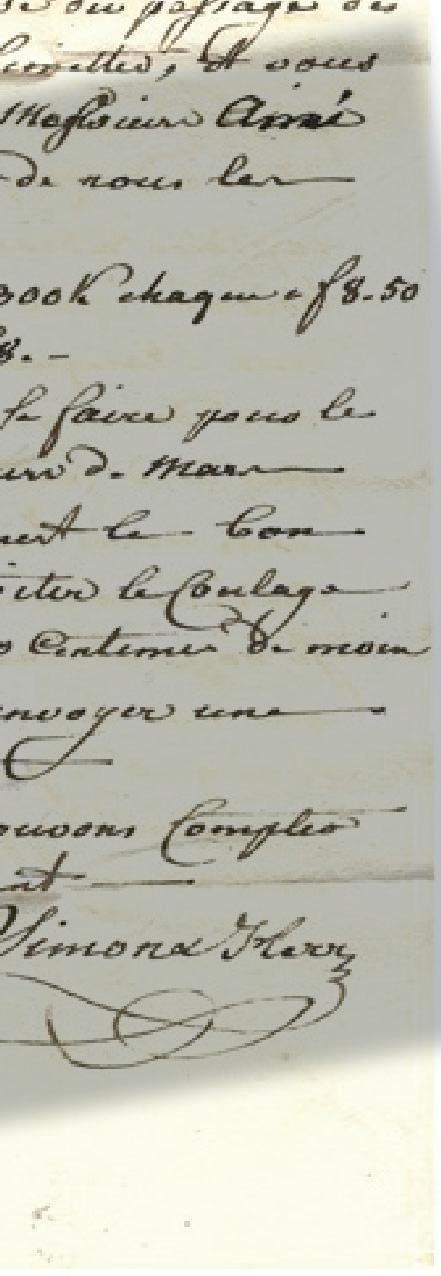 du passage des
et vous
Messieurs Aimé
de nous les
300 K chaque a f 8.50
8. -
se faire pour le
de Mars
le bon
iter le Coulage
Centimes de moin
nvoyer une
ouvons Compter
nt
Simon & Herr